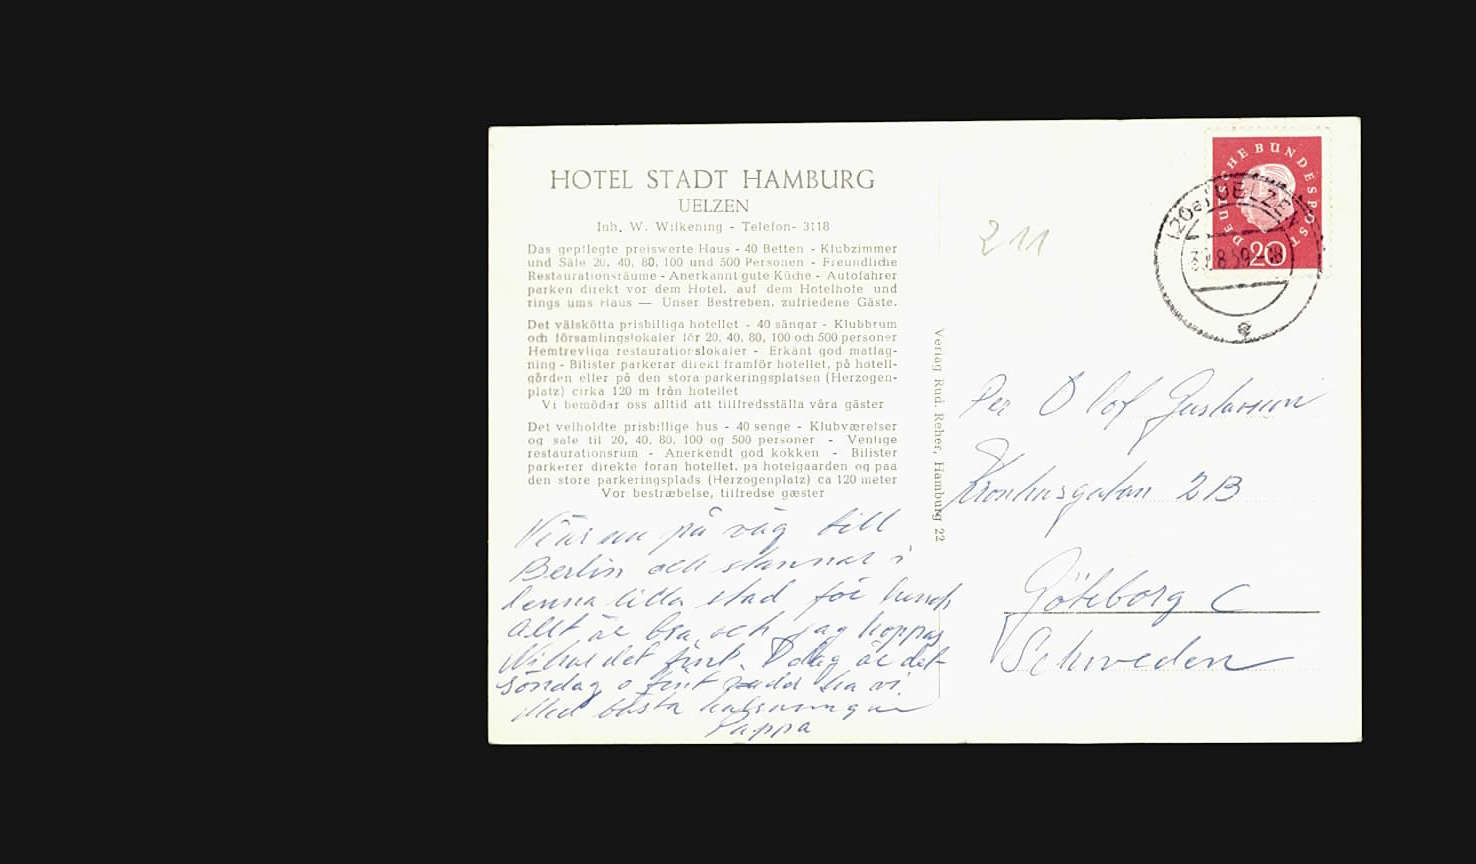 HOTEL STADT HAMBURG
UELZEN
Inh. W. Wilkening - Telefon- 3118
Das gepflegte preiswerte Haus - 40 Betten - Klubzimmer
und Säle 20, 40, 80, 100 und 500 Personen - Freundliche
Restaurationsräume - Anerkannt gute Küche - Autofahrer
parken direkt vor dem Hotel, auf dem Hotelhofe und
rings ums Haus — Unser Bestreben, zufriedene Gäste.
Det välskötta prisbilliga hotellet - 40 sängar - Klubbrum
och församlingslokaler för 20, 40, 80, 100 och 500 personer
Hemtrevliga restaurationslokaler - Erkänt god matlag-
ning - Bilister parkerar direkt framför hotellet, på hotell-
gården eller på den stora parkeringsplatsen (Herzogen-
platz) cirka 120 m från hotellet
Vi bemödar oss alltid att tillfredsställa våra gäster
Det velholdte prisbillige hus - 40 senge - Klubværelser
og sale til 20, 40, 80, 100 og 500 personer - Venlige
restaurationsrum - Anerkendt god kokken - Bilister
parkerer direkte foran hotellet, pa hotelgaarden og paa
den store parkeringsplads (Herzogenplatz) ca 120 meter
Vor bestræbelse, tilfredse gæster
Vi är nu på väg till
Berlin och stannar i
denna lilla stad för lunch
Allt är bra och jag hoppas
Ni har det fint. I dag är det
söndag o fint väder ha vi.
Med bästa hälsningar
Pappa
Verlag Rud. Reher, Hamburg 22
211
DEUTSCHE BUNDESPOST
20
(20a) UELZEN
8.59
Per Olof Gustavsson
Kronhusgatan 2B
Göteborg C
Schweden